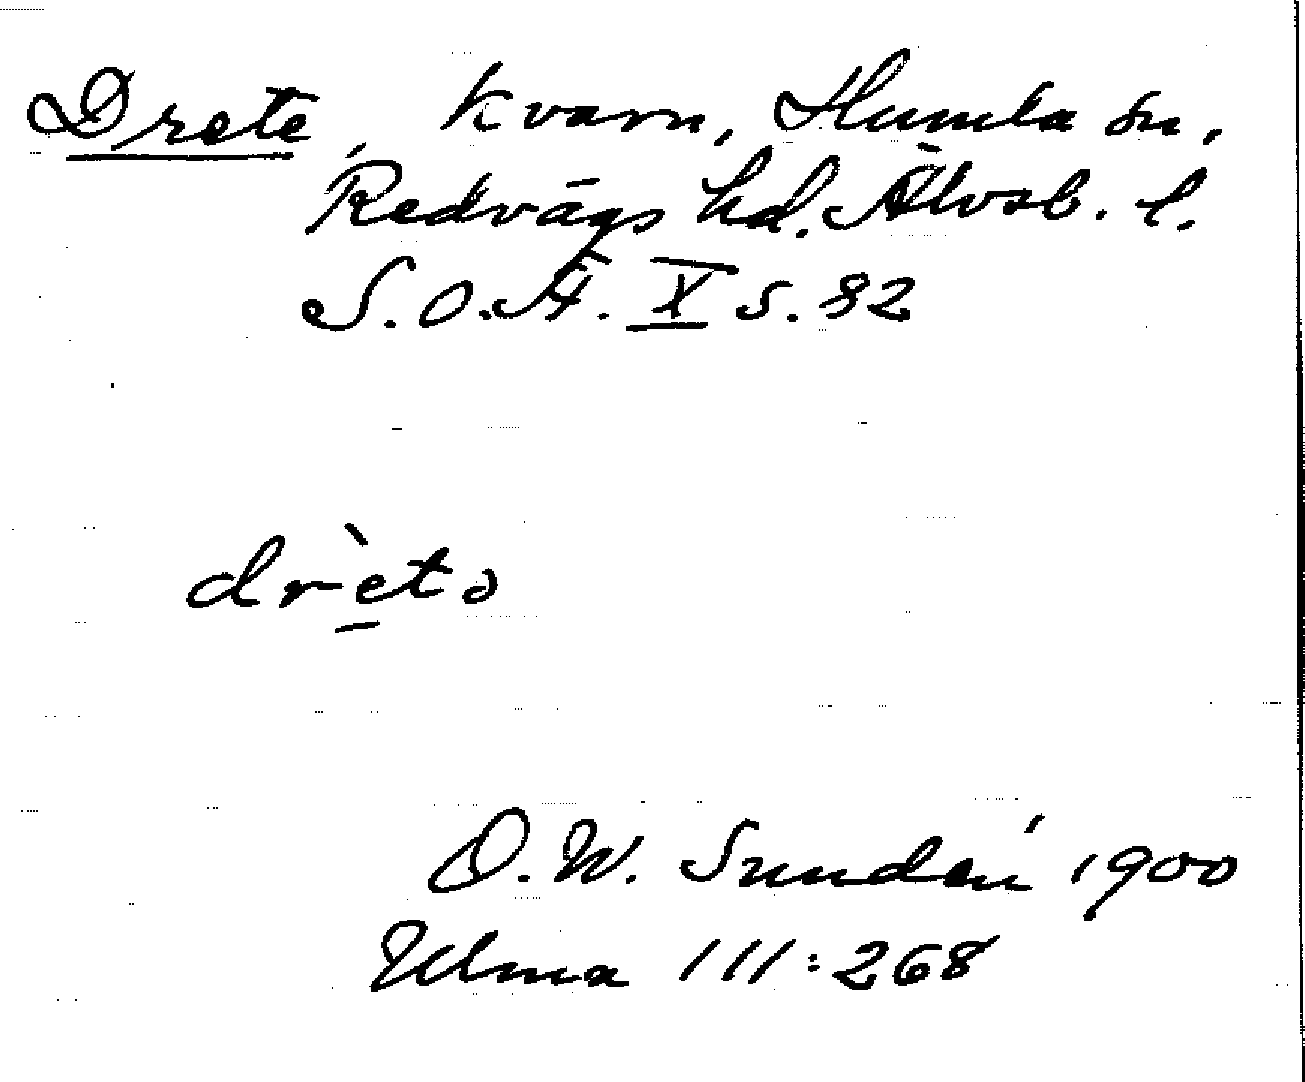 Drete, kvarn, Humla sn,
Redvägs hd. Älvsb. l.
S.O.Ä. X s. 82
drètə
D. W. Sundén 1900
Ulma 111:268